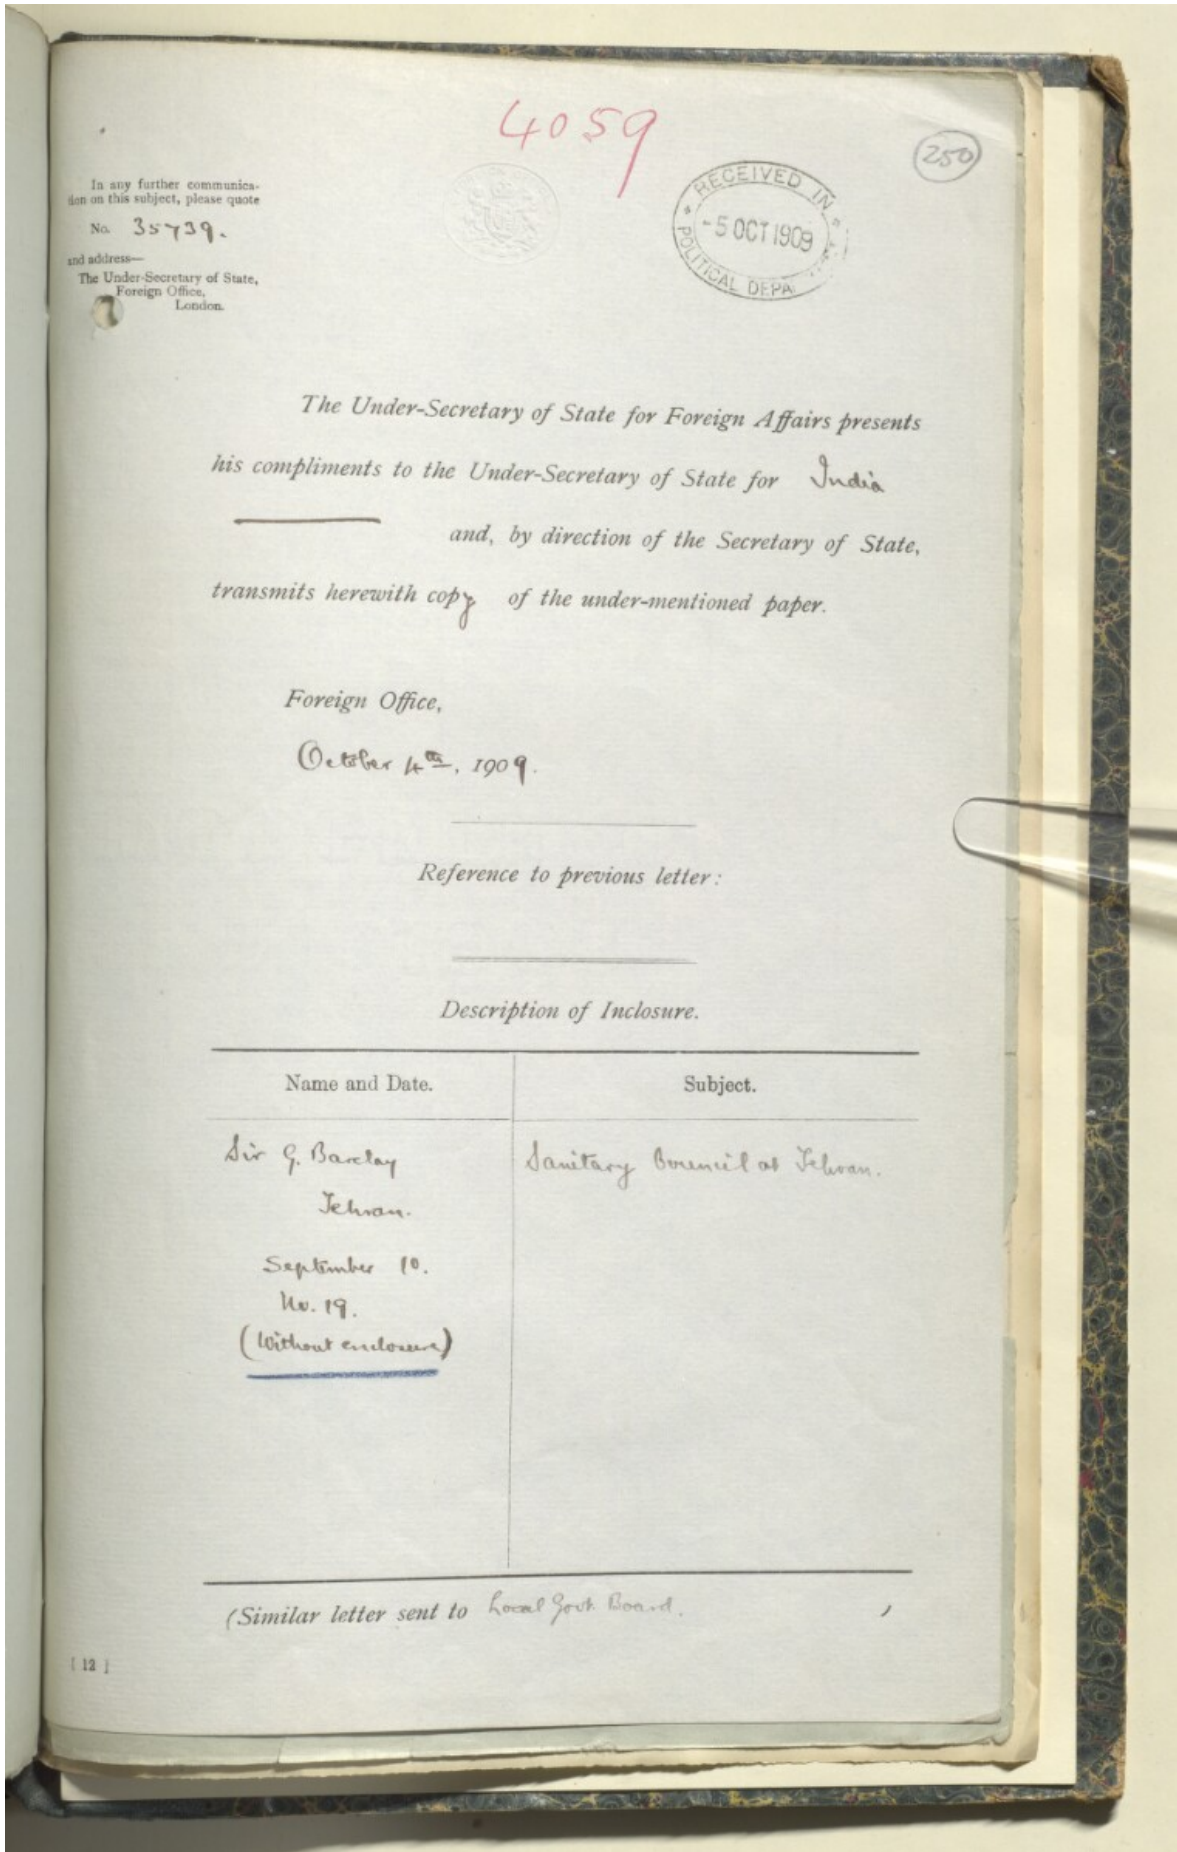 4059
250
In any further communica-
tion on this subject, please quote
No. 35739.
and address—
The Under-Secretary of State,
Foreign Office,
London.
RECEIVED IN
-5 OCT 1909
POLITICAL DEPA
The Under-Secretary of State for Foreign Affairs presents
his compliments to the Under-Secretary of State for India
and, by direction of the Secretary of State,
transmits herewith copy of the under-mentioned paper.
Foreign Office,
October 4th, 1909.
Reference to previous letter:
Description of Inclosure.
Name and Date.
Subject.
Sir G. Barclay
Tehran.
September 10.
No. 19.
(Without enclosure)
Sanitary Council at Tehran.
(Similar letter sent to Local Govt. Board. )
[ 12 ]